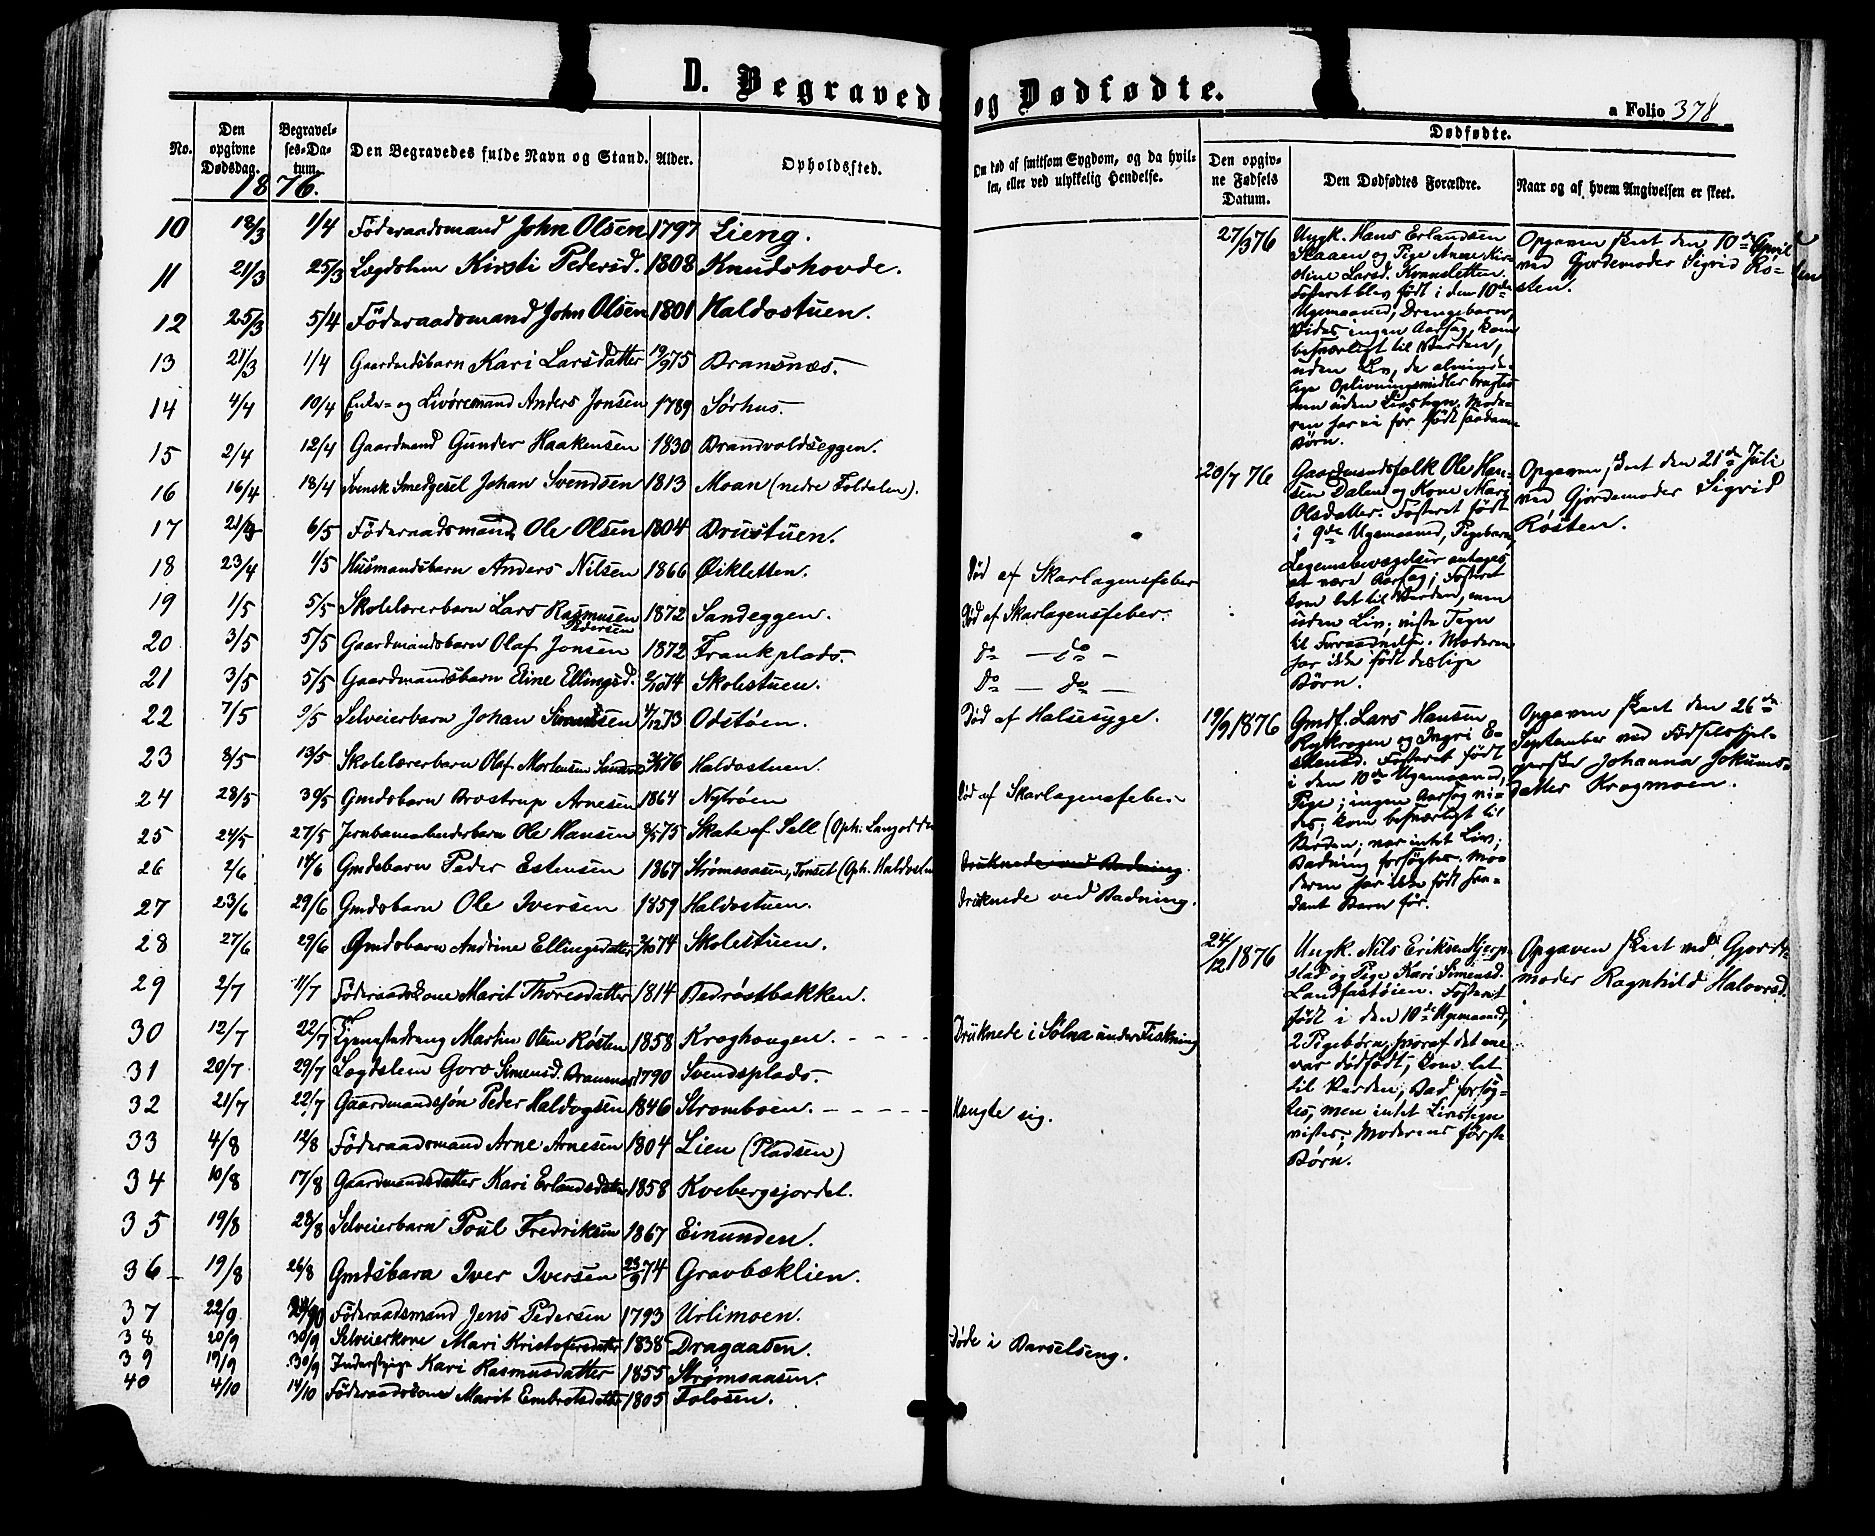 D. Begravede og Dødfødte.
a Folio 378
No. Den opgivne Dødsdag. Begravelses-Datum. Den Begravedes fulde Navn og Stand. Alder. Opholdssted.
Om død af smitsom Sygdom, og da hvilken, eller ved ulykkelig Hendelse.
Dødfødte.
Den opgivne Fødsels Datum. Den Dødfødtes Forældre. Naar og af hvem Angivelsen er skeet.
1876.
10 18/3 1/4 Föderaadsmand John Olsen 1797 Lieng.
11 21/3 25/3 Lægdslem Kirsti Pedersd. 1808 Knudshovde.
12 25/3 5/4 Föderaadsmand John Olsen 1801 Haldostuen.
13 21/3 1/4 Gaardmdsbarn Kari Larsdatter 19/9 75 Bransnæs.
14 4/4 10/4 Enke- og Livöresmand Anders Jonsen 1789 Sørhus.
15 2/4 12/4 Gaardmand Gunder Haakensen 1830 Brandvoldseggen.
16 16/4 18/4 Svensk Smedgesel Johan Svendsen 1813 Moan (nedre Foldalen).
17 21/4 6/5 Föderaadsmand Ole Olsen 1804 Brustuen.
18 23/4 1/5 Husmandsbarn Anders Nilsen 1866 Øikletten. Död af Skarlagensfeber
19 1/5 5/5 Skolelærerbarn Lars Rasmusen Pedersen 1872 Sandeggen. Död af Skarlagensfeber.
20 3/5 5/5 Gaardmandsbarn Olaf Jonsen 1872 Frankplads. Do — Do —
21 3/5 5/5 Gaardmandsbarn Eline Ellingsd. 2/10 74 Skolestuen. Do — Do —
22 7/5 9/5 Selveierbarn Johan Simensen 4/12 73 Odstøen. Död af Halsesyge.
23 8/5 13/5 Skolelærerbarn Olaf Mortensen 76 Haldostuen.
24 28/5 30/5 Gmdsbarn Brostrup Arnesen 1864 Nytrøen Död af Skarlagensfeber
25 24/5 27/5 Jernbanearbeidersbarn Ole Hansen 75 Skate af Sell (Oph:
26 2/6 14/6 Gmdsbarn Peder Estensen 1867 Strømsaasen, Tonset (Oph. Haldostuen Druknede ved Badning.
27 23/6 29/6 Gmdsbarn Ole Iversen 1859 Haldostuen. Druknede ved Badning.
28 27/6 29/6 Gmdsbarn Andrine Ellingsdatter 2/10 74 Skolestuen.
29 2/7 11/7 Föderaadskone Marit Thoresdatter 1814 Bedröstbakken.
30 12/7 22/7 Tjenestedreng Martin Olsen Røsten 1858 Kroghougen. - - - - Druknede i Sølna under Fiskning
31 20/7 29/7 Lægdslem Goro Simensd. Bransnæs 1790 Svendsplads.
32 21/7 22/7 Gaardmandssön Peder Haldogsen 1846 Stromboen. - - - - - Hængte sig.
33 4/8 12/8 Föderaadsmand Arne Arnesen 1804 Lien (Pladsen)
34 10/8 17/8 Gaardmandsdatter Kari Erlandsdatter 1858 Kvebergsjordet.
35 19/8 28/8 Selveierbarn Poul Fredriksen 1867 Einunden.
36 19/8 26/8 Gmdsbarn Iver Iversen 23/9 74 Gravbæklien.
37 22/9 Föderaadsmand Jens Pedersen 1793 Urlimoen.
38 20/9 30/9 Selveierkone Mari Kristofersdatter 1838 Dragaasen. Døde i Barselseng.
39 19/9 30/9 Inderstpige Kari Rasmusdatter 1855 Strømsaasen.
40 4/10 14/10 Föderaadskone Marit Embretsdatter 1805 Folosen.
27/3 76 Ungk. Hans Erlandsen
Skaaen og Pige Anne Kir-
stine Larsd. Kvansletten.
Fosteret blev født i den 10de
Ugemaaned, Drengebarn,
Vides ingen Aarsag, kom
besværligt til Verden,
uden Liv, de alminde-
lige Oplivningsmidler brugtes
men uden Livstegn. Mode-
ren har ei før født saadanne
Börn.
Opgaven skeet den 10de April
ved Gjordemoder Sigrid Rö-
sten.
20/7 76 Gaardmandsfolk Ole Han-
sen Dalen og Kone Mari
Olsdatter. Fosteret født
i 9de Ugemaaned, Pigebarn,
Legemsbevægelser antages
at være Aarsag; Fosteret
kom let til Verden, men
uden Liv; viste Tegn
til Forraadnelse. Moderen
har ikke födt deslige
Börn.
Opgaven skeet den 21de Juli
ved Gjordemoder Sigrid
Røsten.
19/9 1876 Gmdf. Lars Hansen
Rykrogen og Ingri E-
stensd. Fosteret født
i den 10de Ugemaaned,
Pige; ingen Aarsag vi-
des; kom besværligt til
Verden; var intet Liv;
Badning forsögtes. Mo-
deren har ikke født saa-
dant Barn før.
Opgaven skeet den 26de
September ved Födselshjel-
perske Johanna Jokums-
datter Krogmoen.
24/12 1876 Ungk. Nils Eriksen Hjerp-
stad og Pige Kari Simensd.
Landfastöien. Fosteret
født i den 10de Ugemaaned,
2 Pigebörn, hvoraf det ene
var dödfödt, kom let
til Verden; Bad forsög-
tes, men intet Livstegn
vistes; Moderens første
Börn.
Opgaven skeet ved Gjorde-
moder Ragnhild Halvorsd.